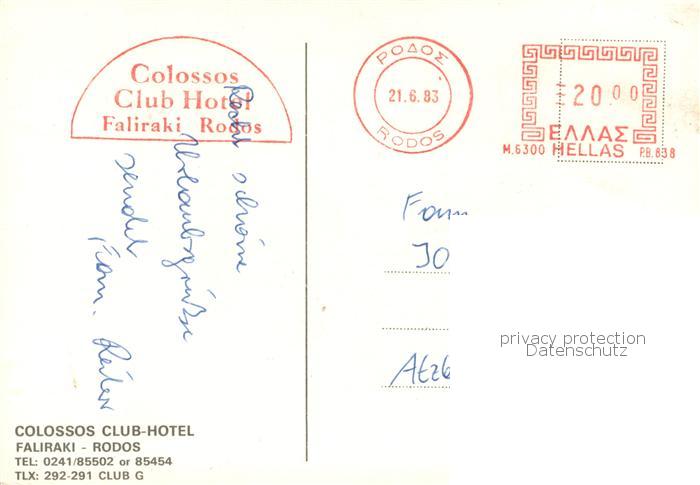 Colossos
Club Hotel
Faliraki Rodos
Recht schöne
Urlaubsgrüße
sendet
Fam. Reiter
COLOSSOS CLUB-HOTEL
FALIRAKI - RODOS
TEL: 0241/85502 or 85454
TLX: 292-291 CLUB G
ΡΟΔΟΣ
21.6.83
RODOS
20 00
ΕΛΛΑΣ
M.6300 HELLAS P.B.838
Fam
JO
Atzb
privacy protection
Datenschutz